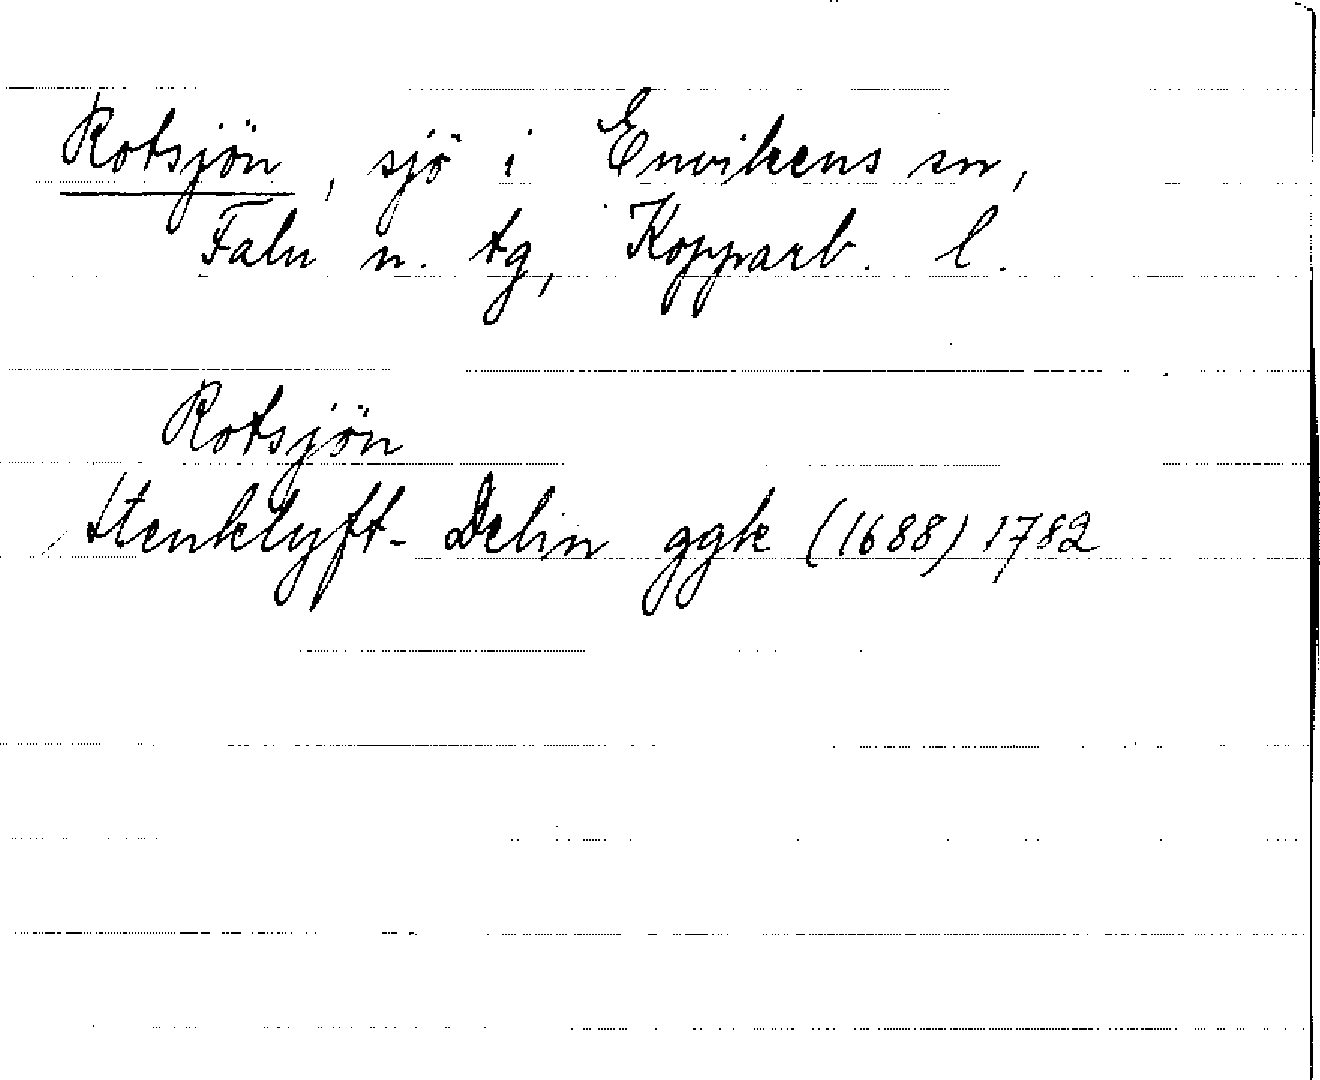 Rotsjön, sjö i Envikens sn,
Falu n. tg, Kopparb. l.
Rotsjön
Stenklyft- Delin ggk (1688) 1782